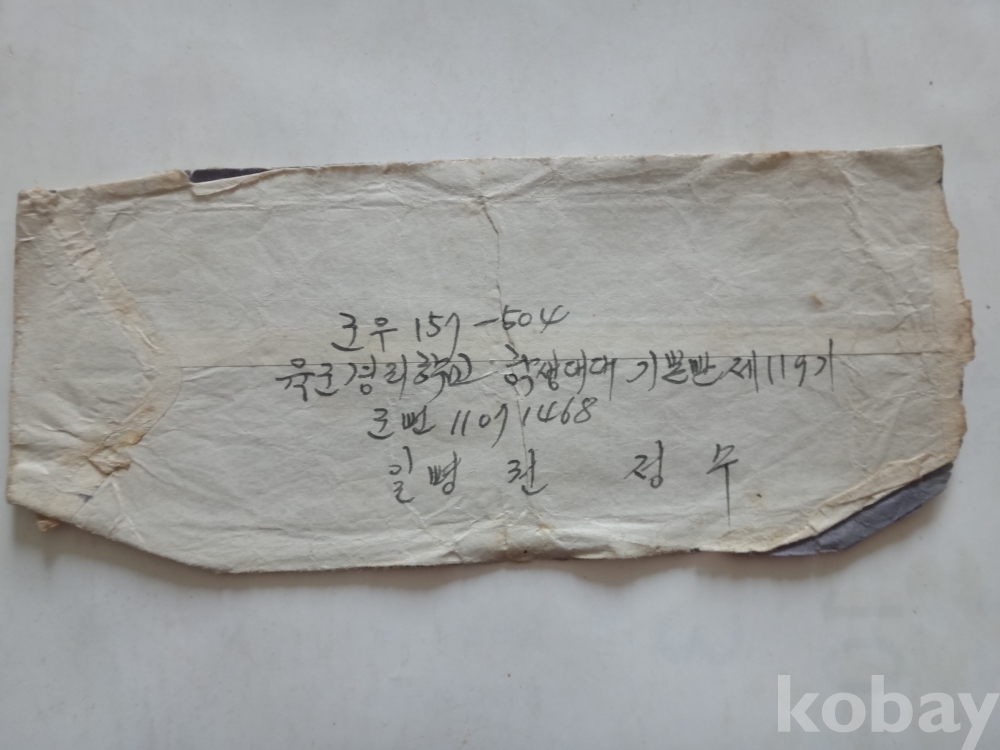 군우 157-504
육군경리학교 학생대대 기본반 제119기
군번 11071468
일병 전 정수
kobay